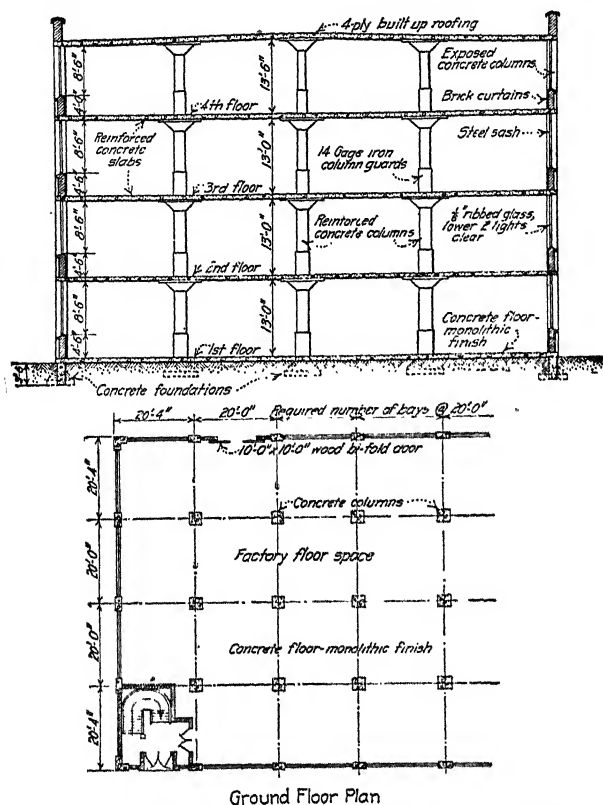 4-ply built up roofing
Exposed
concrete columns
Brick curtains
4th floor
Steel sash
Reinforced
concrete
slabs
14 Gage iron
column guards
3rd floor
Reinforced
concrete columns
⅛" ribbed glass,
lower 2 lights
clear
2nd floor
Concrete floor-
monolithic
finish
1st floor
8'-6"
4'-0"
13'-6"
8'-6"
4'-6"
13'-0"
8'-6"
4'-6"
13'-0"
8'-6"
4'-6"
13'-0"
Concrete foundations
20'-4"
20'-0"
Required number of bays @ 20'-0"
10'-0" x 10'-0" wood bi-fold door
20'-4"
Concrete columns
20'-0"
Factory floor space
20'-0"
Concrete floor-monolithic finish
20'-4"
Ground Floor Plan